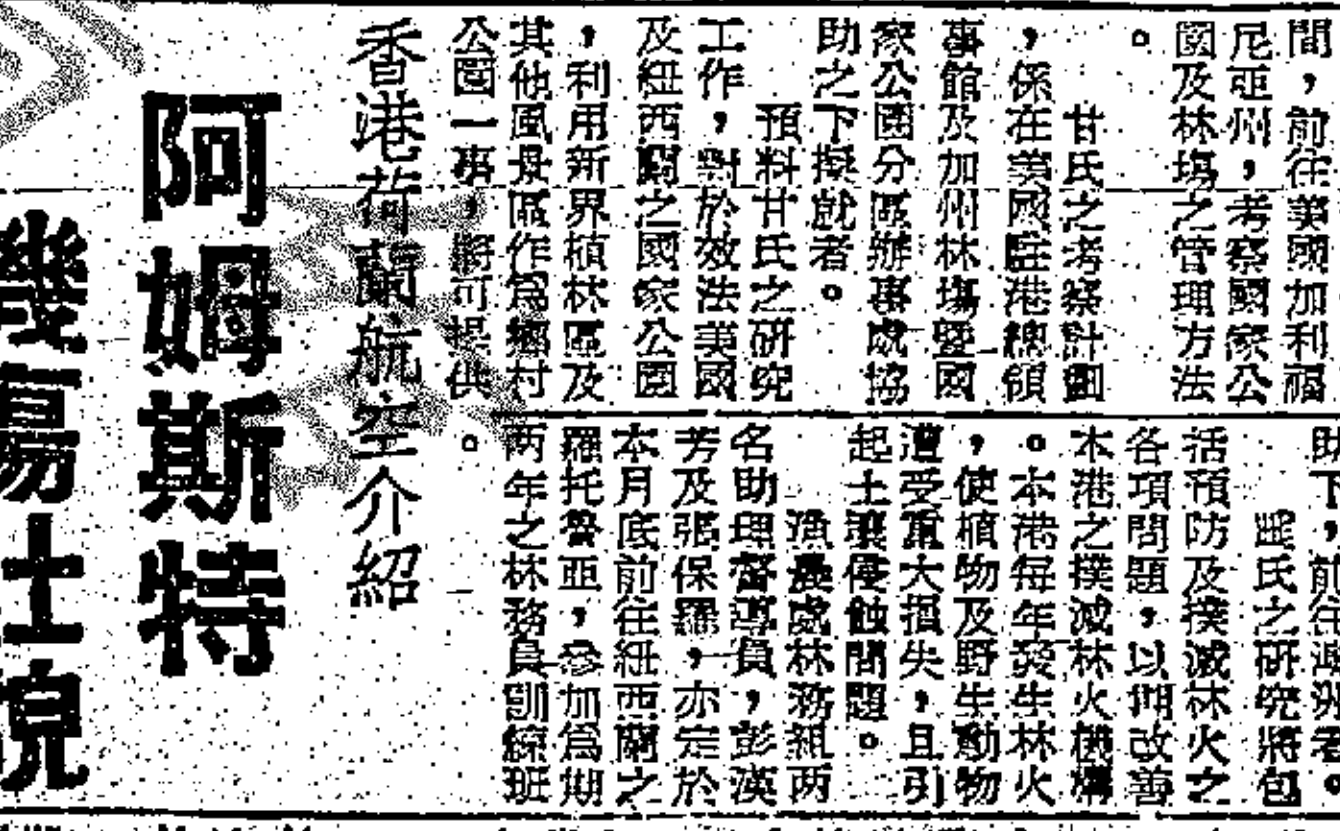 間，前往美國加利福
尼亞州，考察國家公
園及林場之管理方法
。
甘氏之考察計劃
，係在美國駐港總領
事館及加州林場暨國
家公園分區辦事處協
助之下擬就者。
預料甘氏之研究
工作，對於效法美國
及紐西蘭之國家公園
，利用新界植林區及
其他風景區作為鄉村
公園一事，將可提供
助下，前往澳洲者。
氏之研究將包
括預防及撲滅林火之
各項問題，以期改善
本港之撲滅林火機構
。本港每年發生林火
，使植物及野生動物
遭受重大損失，且引
起土壤侵蝕問題。
漁農處林務組两
名助理督導員，彭漢
芳及張保羅，亦定於
本月底前往紐西蘭之
羅托魯亞，參加為期
两年之林務員訓練班
。
香港荷蘭航空介紹
阿姆斯特